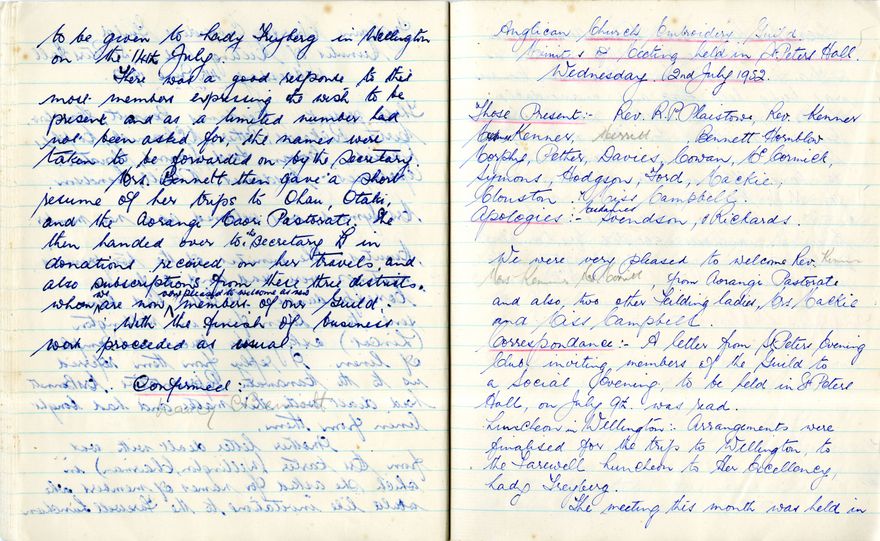 to be given to Lady Freyberg in Wellington
on the 14th July.
There was a good response to this
most members expressing the wish to be
present and as a limited number had
not been asked for, the names were
taken to be forwarded on by the Secretary.
Mrs. Bennett then gave a short
resume of her trips to Ohau, Otaki,
and the Aorangi Maori Pastorate. She
then handed over to the Secretary in
donations received on her travels, and
also subscriptions from these three districts.
whom we are now very pleased to welcome as new members of our Guild.
With the finish of business
work proceeded as usual.
Confirmed:
Anglican Church Embroidery Guild.
Minutes of Meeting held in St Peters Hall.
Wednesday. 2nd July 1952.
Those Present:- Rev. R.P. Plaistowe, Rev. Kenner
Kenner, Merrill Bennett Hornblow
Pether, Davies, Cowan, McCormick,
Simons, Hodgson, Ford, Mackie,
Clouston. Miss Campbell.
Apologies:- Svendson, Richards.
We were very pleased to welcome Rev.
from Aorangi Pastorate
and also, two other Feilding ladies, Mrs Mackie
and Miss Campbell.
Correspondance:- A letter from St Peters Evening
Club inviting members of the Guild to
a Social Evening, to be held in St Peters
Hall, on July 9th. was read.
Luncheon in Wellington:- Arrangements were
finalised for the trip to Wellington, to
the Farewell Luncheon to Her Excellency,
Lady Freyberg.
The meeting this month was held in